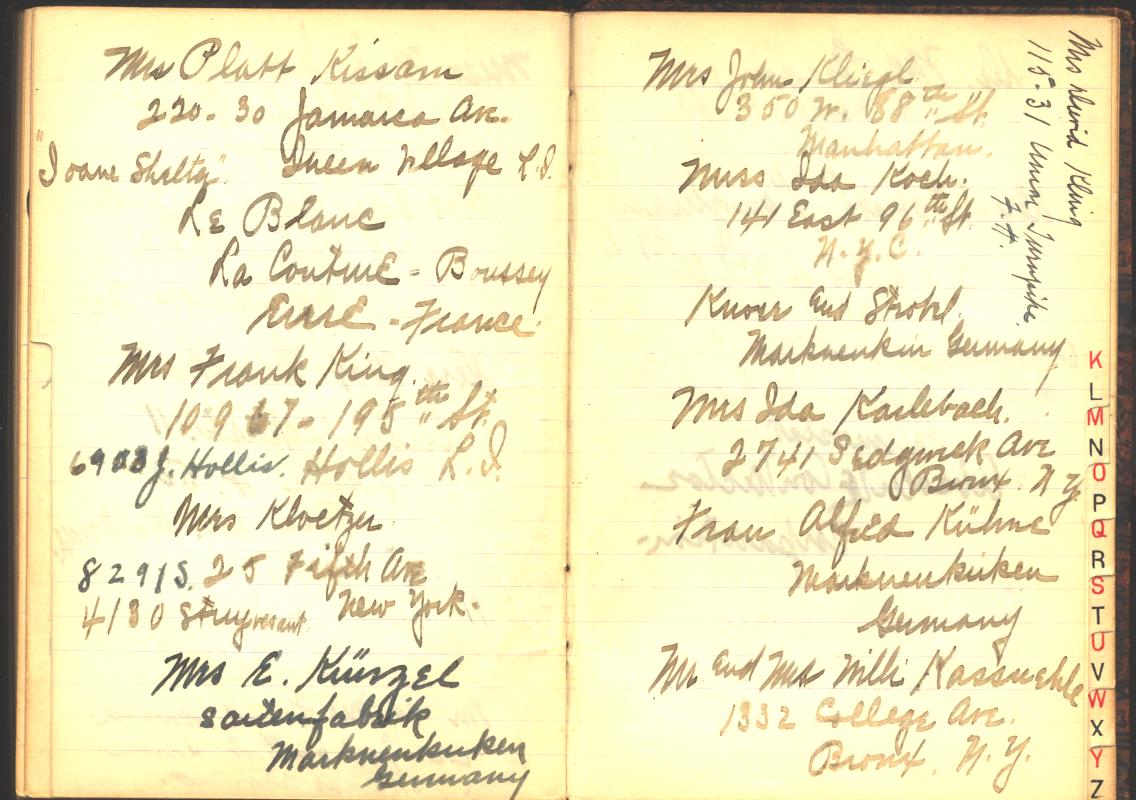 Mrs Platt Kissam
220-30 Jamaica Ave.
"Joane Shelta" Queen Village L.I.
Le Blanc
La Couture-Boussey
Eure-France
Mrs Frank King
109 67-198th St.
6903 J. Hollis. Hollis L.I.
Mrs Kloetzer
8291 S. 25 Fifth Ave
4130 Stuyvesant New York.
Mrs E. Kürzel
Saitenfabrik
Markneukirken
Germany
Mrs John Kliegl
350 W. 88th St.
Manhattan.
Miss Ida Koch.
141 East 96th St.
N.Y.C.
and Strobel.
Markneukirn Germany
Mrs Ida Karlebach.
2741 Sedgwick Ave
Bronx. N Y
Frau Alfred Kühne
Markneukirken
Germany
Mr and Mrs Willi
1332 College Ave.
Bronx, N.Y.
Mrs David Kling
115-31 Union Turnpike.
F.H.
K
L
M
N
O
P
Q
R
S
T
U
V
W
X
Y
Z